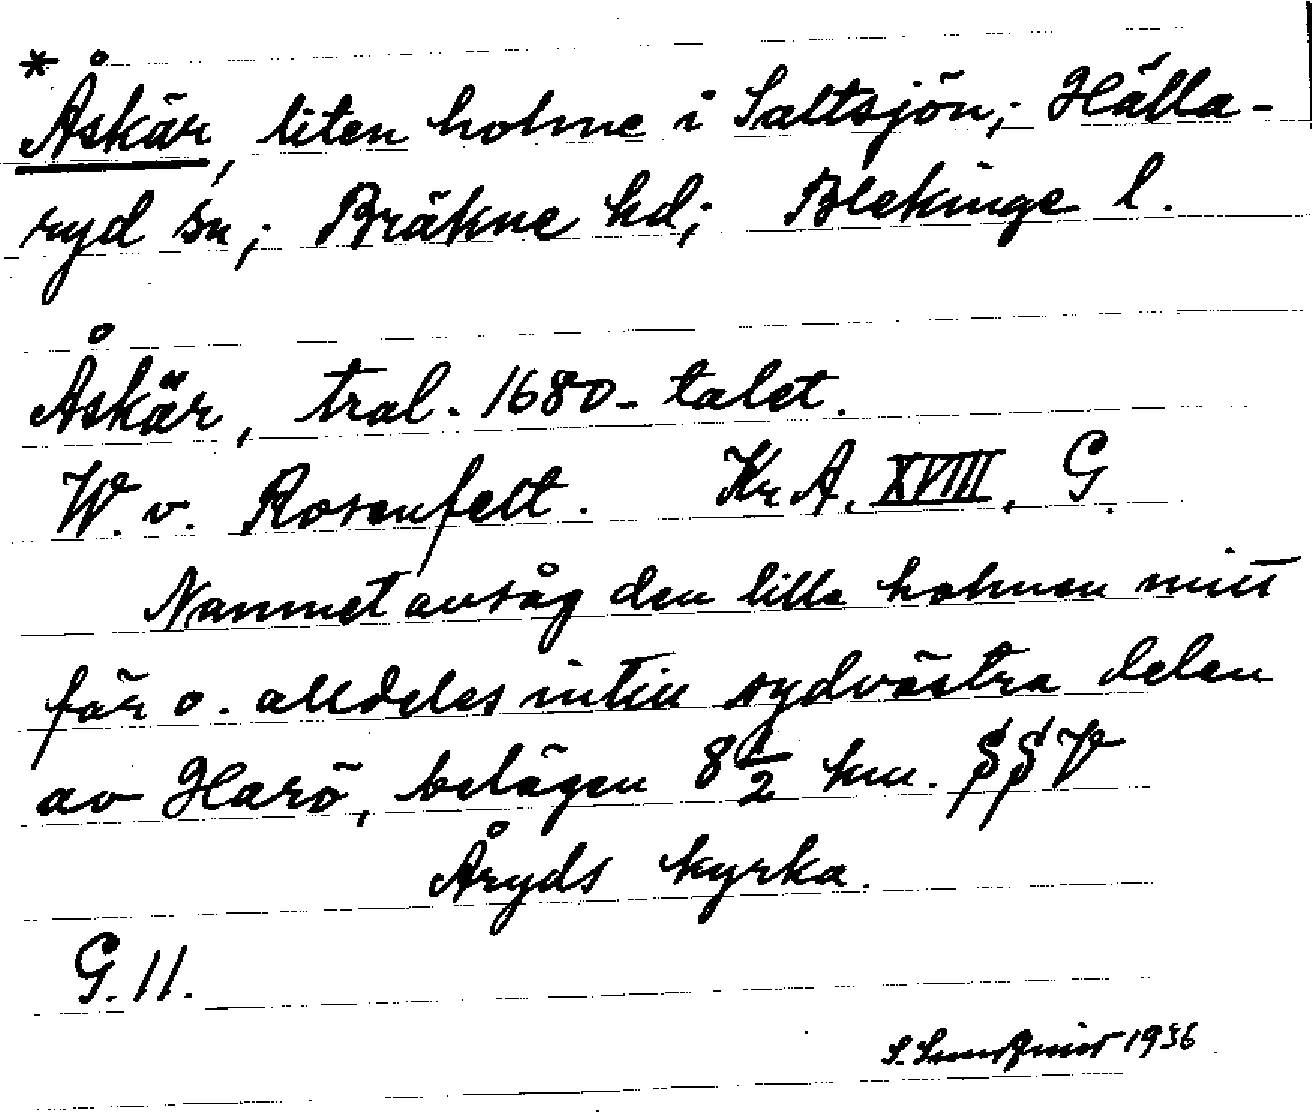 * Åskär, liten holme i Saltsjön; Hälla-
ryd sn; Bräkne hd; Blekinge l.
Åskär, tral. 1680-talet.
W. v. Rosenfelt. Kr. A. XVIII, G.
Namnet avsåg den lilla holmen mitt
för o. alldeles intill sydvästra delen
av Harö, belägen 8 1/2 km. SSV
Åryds kyrka.
G. 11.
S. 1936